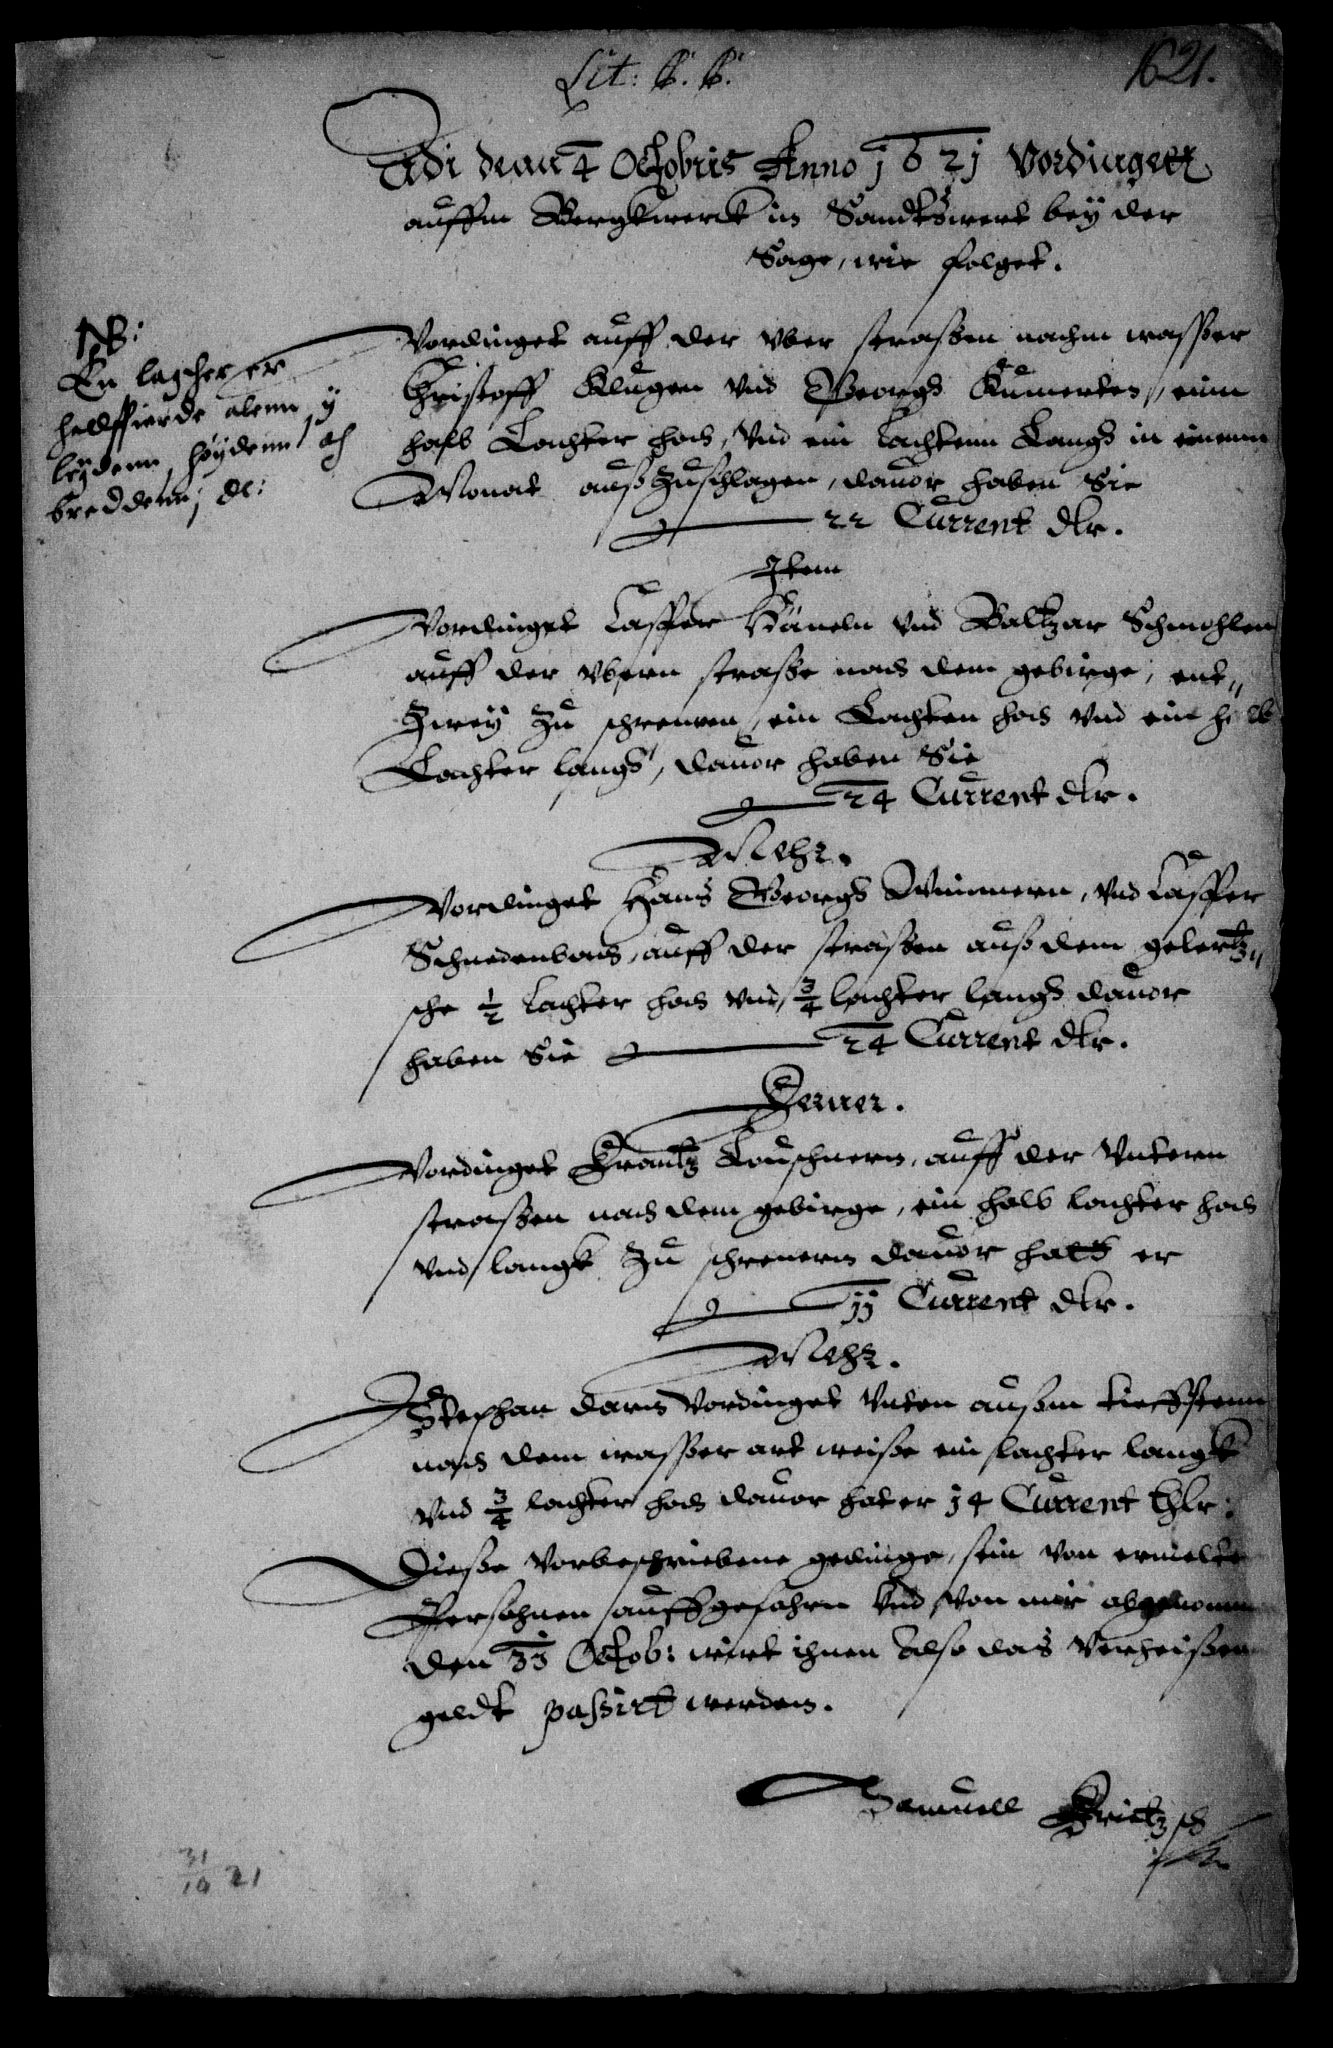 Lit: B. B.
1621.
Adi denn 4 Octobris Anno 1621 Vordinget
auffm Bergkwerck in Sandtswert beÿ der
Sage, wie folget.
NB:
En lagther er
hallffierde alenn y
leÿdenn, høÿdenn och
breddenn, etc:
Vordinget auff der vber strassen nachm wasser
Christoff Klugen vnd Georgh Kumerten, einn
halb Lachter hoch, vnd ein Lachtenn Langh in einenn
Monat auß Zuschlagen, dauor haben Sie
22 Current dlr.
Item
Vordinget Casper Häneln vnd Baltzar Schmohlen
auff der vbern strasse nach dem gebirge, ent„
Zweÿ Zu schremen, ein Lachter hoch vnd ein halb
Lachter langh, dauor haben Sie
24 Current dlr.
Mehr.
Vordinget Hans Georgh Wimmern, vnd Casper
Schnedenbach, auff der strassen auß dem gelertz„
sche ½ Lachter hoch vnd ¾ lachter langh dauor
haben Sie 24 Current dlr.
Ferner.
Vordinget Frantz Louschnern, auff der Vntern
strassen nach dem gebirge, ein halb lachter hoch
vnd langk Zu schremen dauor hatt er
11 Current dlr.
Mehr.
Stephan darin Vordinget Vnten außm tieffstenn
nach dem wasser ort weise ein lachter langk
vnd ¾ lachter hoch dauor hat er 14 Current thlr:
Diesse Vorbeschriebene gedinge, sein von ermelten
Persohnen auffgefahrn Vnd Von mir abgenomm
den 31 Octob: wirt ihnen Also das Verheissen
geldt passirt werden.
Samuell Fritzsch
31
10 21